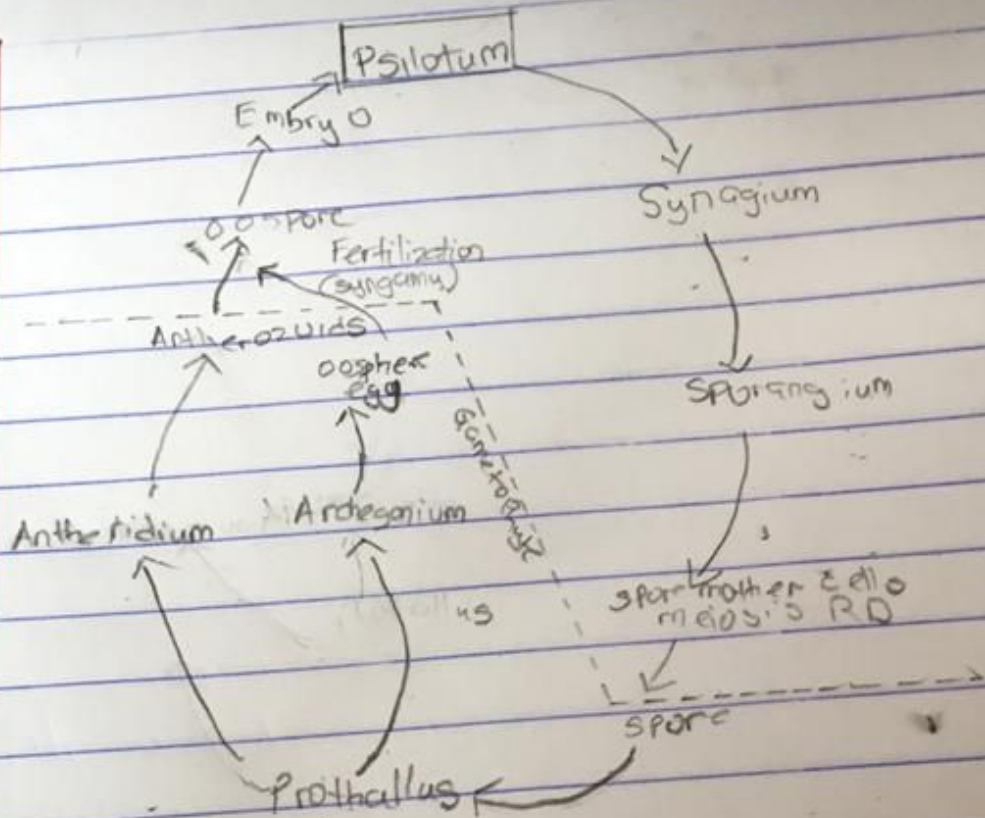 Psilotum
Embryo
Synagium
oospore
Fertilization
(syngamy)
Antherozuids
oosphere
egg
Sporangium
Gametophyte
Antheridium
Archegonium
spore mother cello
meiosis RD
us
spore
Prothallus